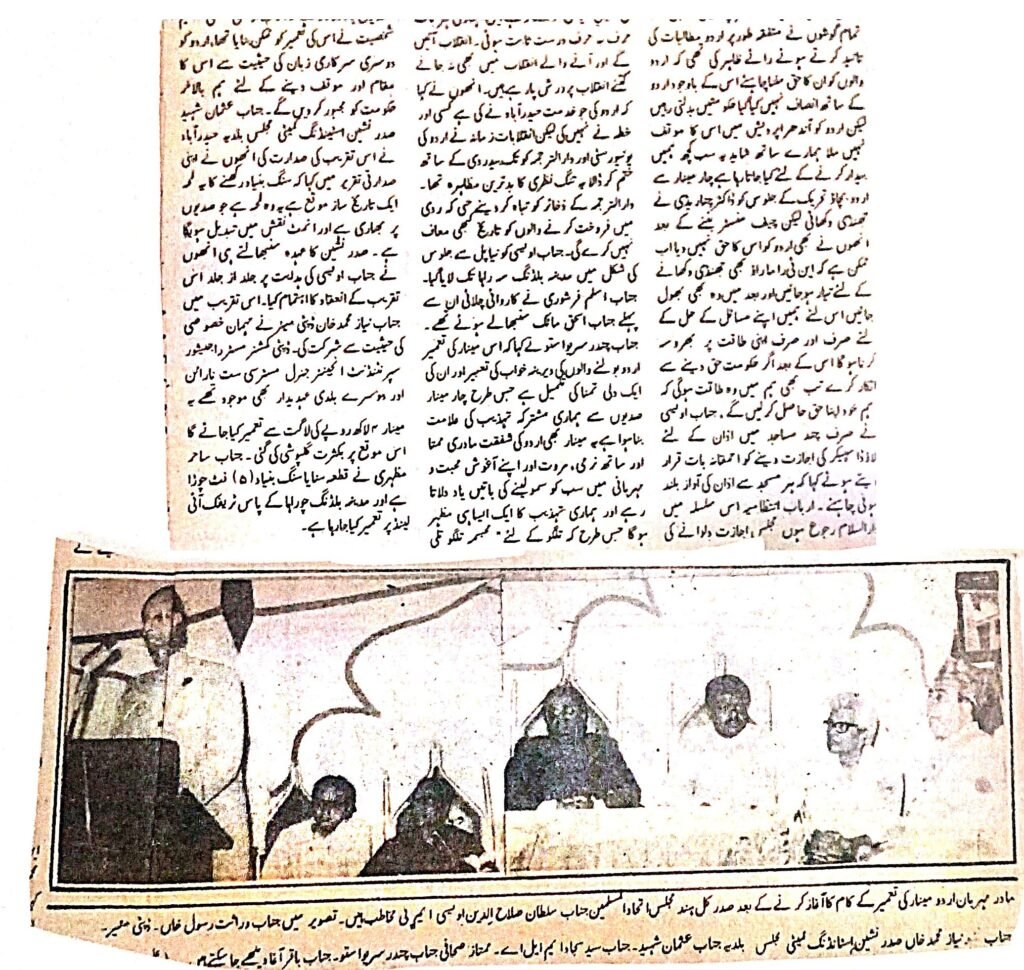 تمام گوشوں نے متفقہ طور پر اردو مطالبات کی
تائید کرتے ہوئے رائے ظاہر کی تھی کہ اردو
والوں کو ان کا حق ملنا چاہئے اس کے باوجود اردو
کے ساتھ انصاف نہیں کیا گیا حکومتیں بدلتی رہیں
لیکن اردو کو آندھرا پردیش میں اس کا موقف
نہیں ملا ہمارے ساتھ شاید یہ سب کچھ ہمیں
بیدار کرنے کے لئے کیا جاتا رہا ہے چار مینار سے
اردو بچاؤ تحریک کے جلوس کو ڈاکٹر چنا ریڈی نے
جھنڈی دکھائی لیکن چیف منسٹر بننے کے بعد
انھوں نے بھی اردو کو اس کا حق نہیں دیا اب
ممکن ہے کہ این ٹی راما راؤ بھی جھنڈی دکھانے
کے لئے تیار ہو جائیں اور بعد میں وہ بھی بھول
جائیں اس لئے ہمیں اپنے مسائل کے حل کے
لئے صرف اور صرف اپنی طاقت پر بھروسہ
کرنا ہو گا اس کے بعد اگر حکومت حق دینے سے
انکار کرے تب بھی ہم میں وہ طاقت ہو گی کہ
ہم خود اپنا حق حاصل کر لیں گے ۔ جناب اویسی
نے صرف چند مساجد میں اذان کے لئے
لاؤڈ اسپیکر کی اجازت دینے کو احمقانہ بات قرار
دیتے ہوئے کہا کہ ہر مسجد سے اذان کی آواز بلند
ہونی چاہئے ۔ ارباب انتظامیہ اس سلسلہ میں
دارالسلام رجوع ہوں مجلس اجازت دلوانے کی
حرف بہ حرف درست ثابت ہوئی ۔ انقلاب آئیں
گے اور آنے والے انقلاب میں بھی نہ جانے
کتنے انقلاب پرورش پا رہے ہیں ۔ انھوں نے کہا
کہ اردو کی جو خدمت حیدرآباد نے کی ہے کسی اور
خطہ نے نہیں کی لیکن انقلابات زمانہ نے اردو کی
یونیورسٹی اور دارالترجمہ کو تک بیدردی کے ساتھ
ختم کر ڈالا یہ تنگ نظری کا بدترین مظاہرہ تھا ۔
دارالترجمہ کے ذخائر کو تباہ کر دینے حتی کہ ردی
میں فروخت کرنے والوں کو تاریخ کبھی معاف
نہیں کرے گی ۔ جناب اویسی کو نیا پل سے جلوس
کی شکل میں مدینہ بلڈنگ سہ راہا تک لایا گیا ۔
جناب اسلم فرشوری نے کاروائی چلائی ان سے
پہلے جناب الحق مانک سنبھالے ہوئے تھے ۔
جناب چندر سریواستو نے کہا کہ اس مینار کی تعمیر
اردو بولنے والوں کی دیرینہ خواب کی تعمیر اور ان کی
ایک دلی تمنا کی تکمیل ہے جس طرح چار مینار
صدیوں سے ہماری مشترکہ تہذیب کی علامت
بنا ہوا ہے یہ مینار بھی اردو کی شفقت مادری ممتا
اور ساتھ نرمی، مروت اور اپنے آغوش محبت و
مہربانی میں سب کو سمو لینے کی باتیں یاد دلاتا
رہے اور ہماری تہذیب کا ایک ایسا ہی مظہر
ہو گا جس طرح کہ تلگو کے لئے " مجسمہ تلگو تلی
شخصیت نے اس کی تعمیر کو ممکن بنایا تھا، اردو کو
دوسری سرکاری زبان کی حیثیت سے اس کا
مقام اور موقف دینے کے لئے ہم بالاخر
حکومت کو مجبور کر دیں گے ۔ جناب عثمان شہید
صدر نشین اسٹینڈنگ کمیٹی مجلس بلدیہ حیدرآباد
نے اس تقریب کی صدارت کی انھوں نے اپنی
صدارتی تقریر میں کہا کہ سنگ بنیاد رکھنے کا یہ لمحہ
ایک تاریخ ساز موقع ہے یہ وہ لمحہ ہے جو صدیوں
پر بھاری ہے اور انمٹ نقش میں تبدیل ہو چکا
ہے ۔ صدر نشین کا عہدہ سنبھالتے ہی انھوں
نے جناب اویسی کی ہدایت پر جلد از جلد اس
تقریب کے انعقاد کا اہتمام کیا ۔ اس تقریب میں
جناب نیاز محمد خان ڈپٹی میئر نے مہمان خصوصی
کی حیثیت سے شرکت کی ۔ ڈپٹی کمشنر مسٹر راجیشور
سپرنٹنڈنٹ انجینئر جنرل مسٹری ست نارائن
اور دوسرے بلدی عہدیدار بھی موجود تھے یہ
مینار ۴ لاکھ روپے کی لاگت سے تعمیر کیا جائے گا
اس موقع پر بکثرت گلپوشی کی گئی ۔ جناب ساحر
مظہری نے قطعہ سنایا سنگ بنیاد (۵) فٹ چوڑا
ہے اور مدینہ بلڈنگ چوراہا کے پاس ٹریفک آئی
لینڈ پر تعمیر کیا جا رہا ہے ۔
مادر مہربان اردو مینار کی تعمیر کے کام کا آغاز کرنے کے بعد صدر کل ہند مجلس اتحاد المسلمین جناب سلطان صلاح الدین اویسی ایم پی مخاطب ہیں ۔ تصویر میں جناب وراثت رسول خاں ۔ ڈپٹی میئر ۔
جناب نیاز محمد خاں صدر نشین اسٹانڈنگ کمیٹی مجلس بلدیہ جناب عثمان شہید ۔ جناب سید سجاد ایم ایل اے ۔ ممتاز صحافی جناب چندر سریواستو ۔ جناب باقر آغا دیکھے جا سکتے